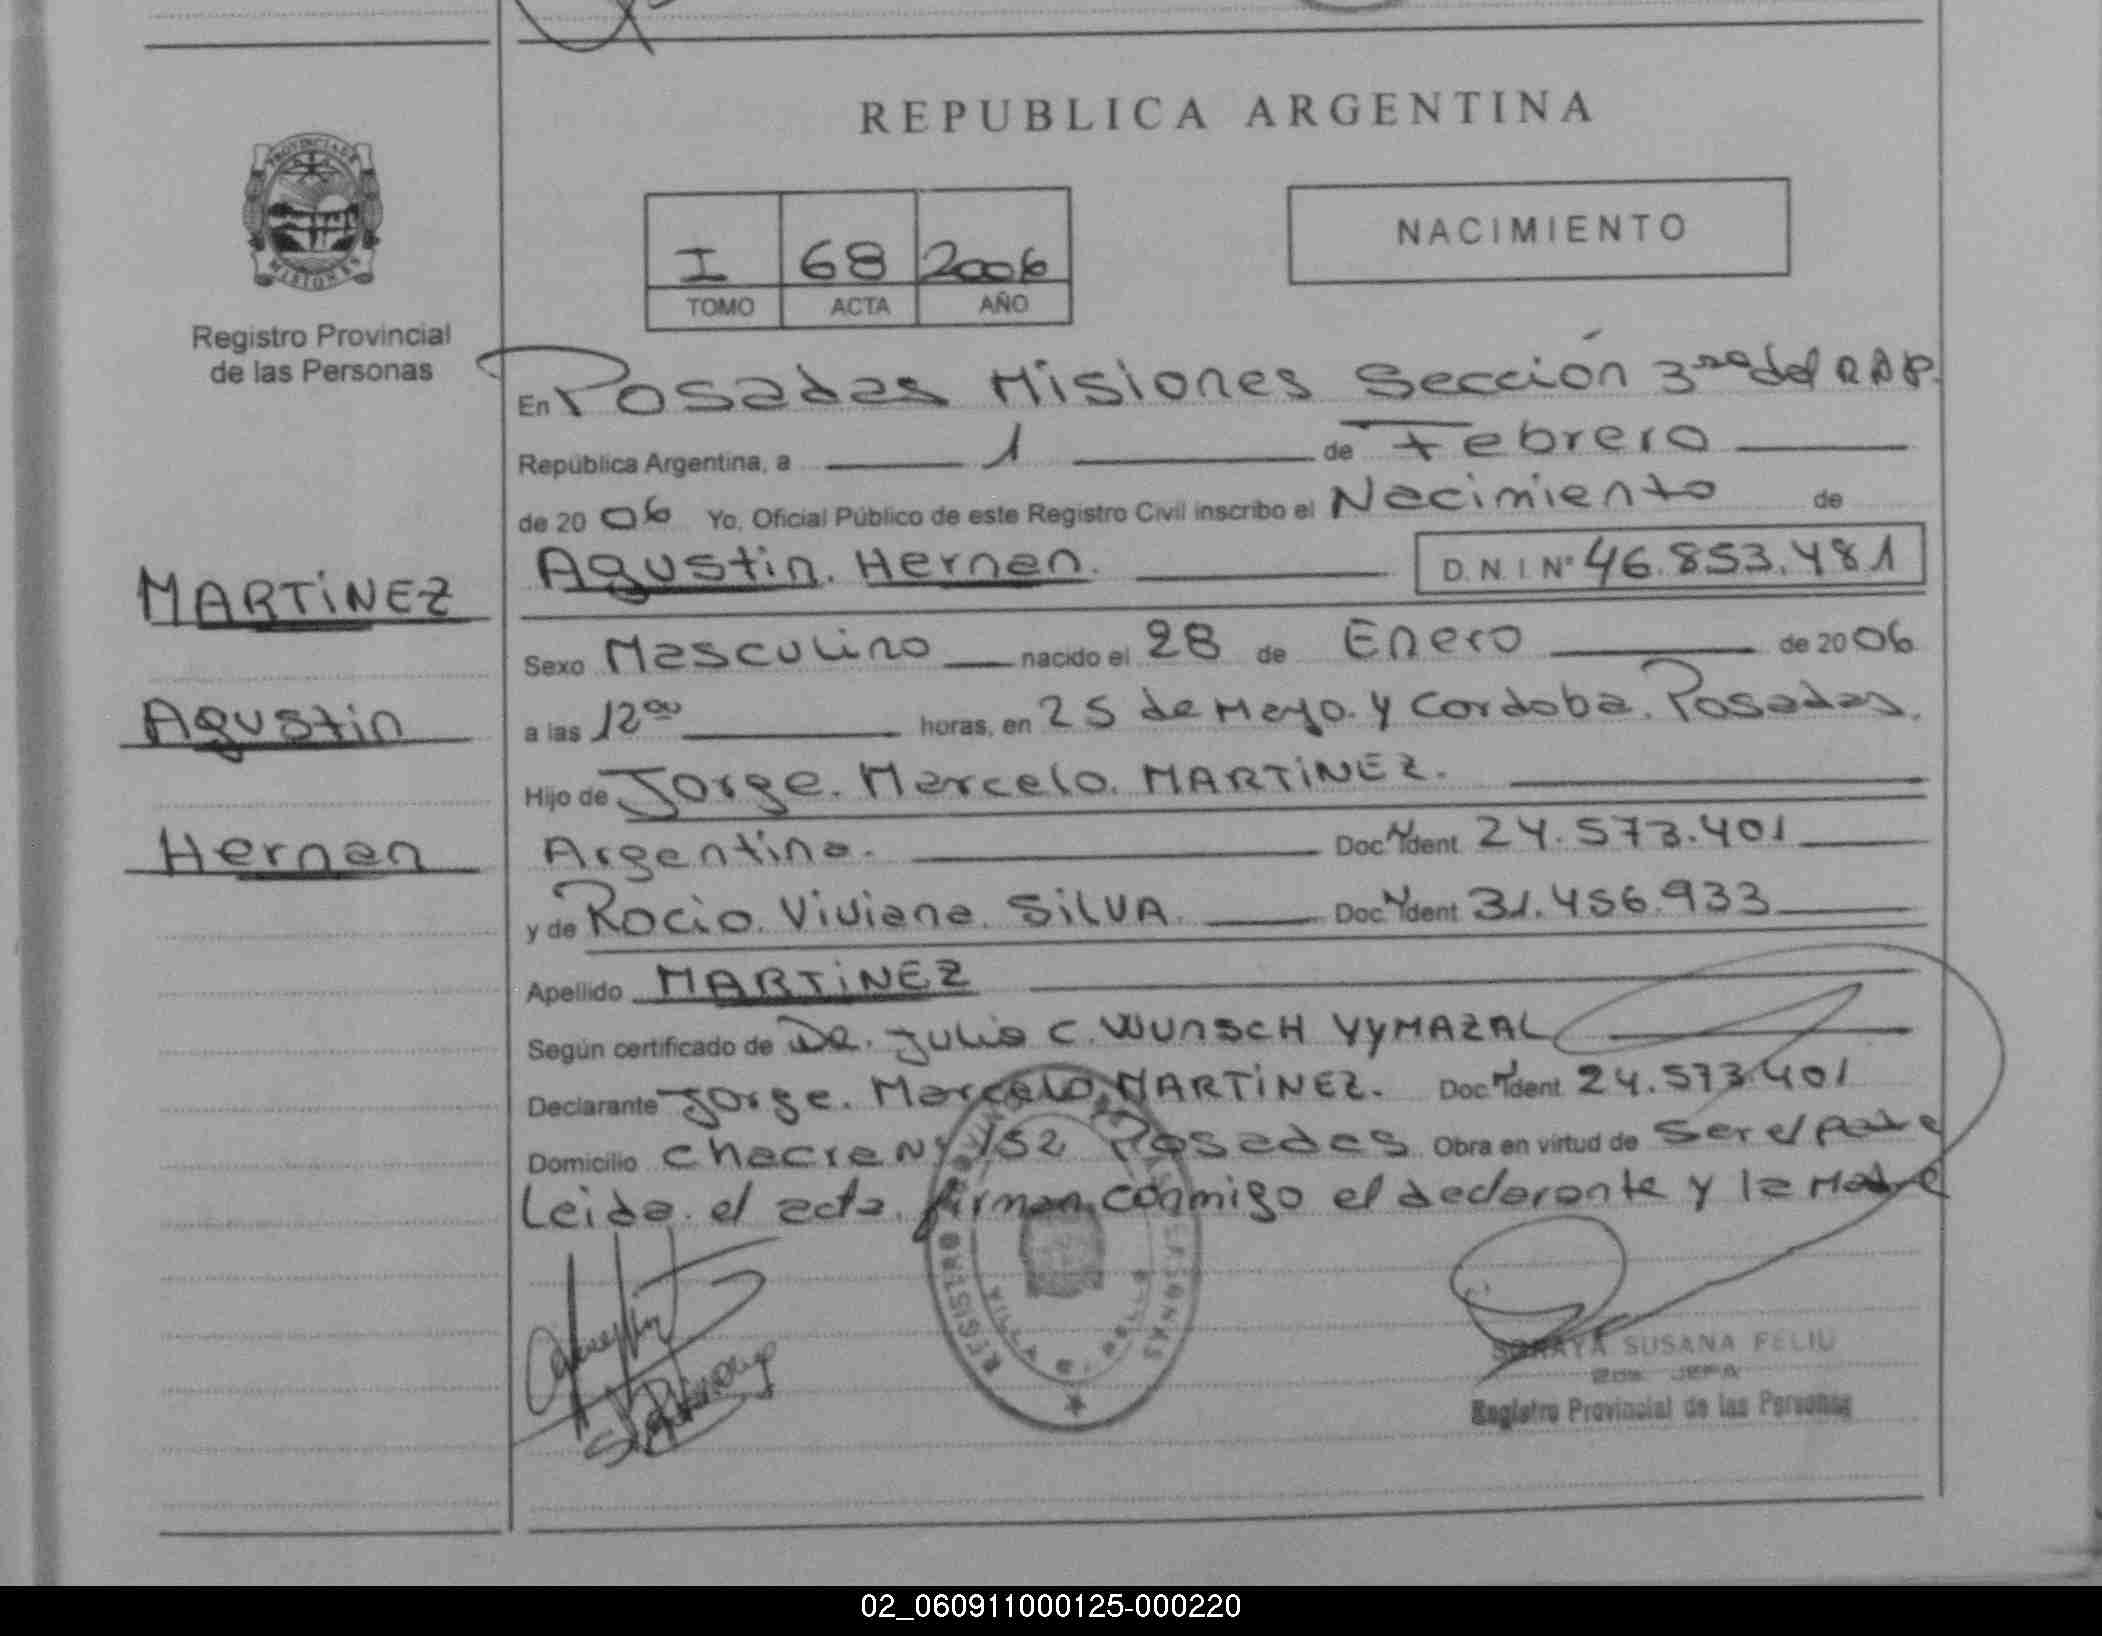 REPUBLICA ARGENTINA
PROVINCIA DE
MISIONES
Registro Provincial
de las Personas
I 68 2006
TOMO ACTA AÑO
NACIMIENTO
En Posadas Misiones Sección 3ra del R.D.P.
República Argentina, a 1 de Febrero
de 2006 Yo, Oficial Público de este Registro Civil inscribo el Nacimiento de
Agustin. Hernan. D.N.I. Nº 46.853.481
MARTiNEZ
Agustin
Hernan
Sexo Masculino nacido el 28 de Enero de 2006
a las 12 00 horas, en 25 de Mayo. y Cordoba. Posadas.
Hijo de Jorge. Marcelo. MARTiNEZ.
Argentina. Doc. Ident 24.573.401
y de Rocio. Viviana. SiLVA. Doc. Ident 31.456.933
Apellido MARTiNEZ
Según certificado de DR. Julio C. WUnscH VYMAZAL
Declarante Jorge. Marcelo MARTiNEZ. Doc. Ident 24.573.401
Domicilio chacra Nº 152 Posadas Obra en virtud de ser el padre
Leida. el acta. firman conmigo el declarante y la Madre
REGISTRO PERSONAS
SORAYA SUSANA FELIU
JEFA
Registro Provincial de las Personas
02_060911000125-000220